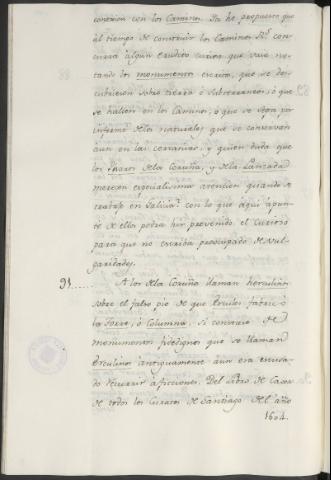 conexion con los Caminos. Ya he propuesto que
al tiempo de construirse los Caminos Rs.
concurra algun erudito curioso que vaie no-
tando los monumentos escritos, que se des-
cubriesen sobre tierra ó subterraneos; ó que
se hallen en los Caminos, ó que se sepa por
informe de los naturales, que se conservan
aun en las cercanias; y quien duda que
los Faros de la Coruña, y de la Lanzada
merecen especialisima atencion quando se
trate en Galicia? con lo que aqui apun-
to de ellos podra hir prevenido el curioso
para que no escriba preocupado de vul-
garidades.
91...... A los de la Coruña llaman herculinos
sobre el falso pie de que Ercules fabricó
la Torre, ó Columna. Si constase de
monumentos fidedignos que se llaman
Erculinos antiguamente aun era escusa-
do recurrir á ficciones. Del Libro de Casa
de todos los Curatos de Santiago de el año
1604.